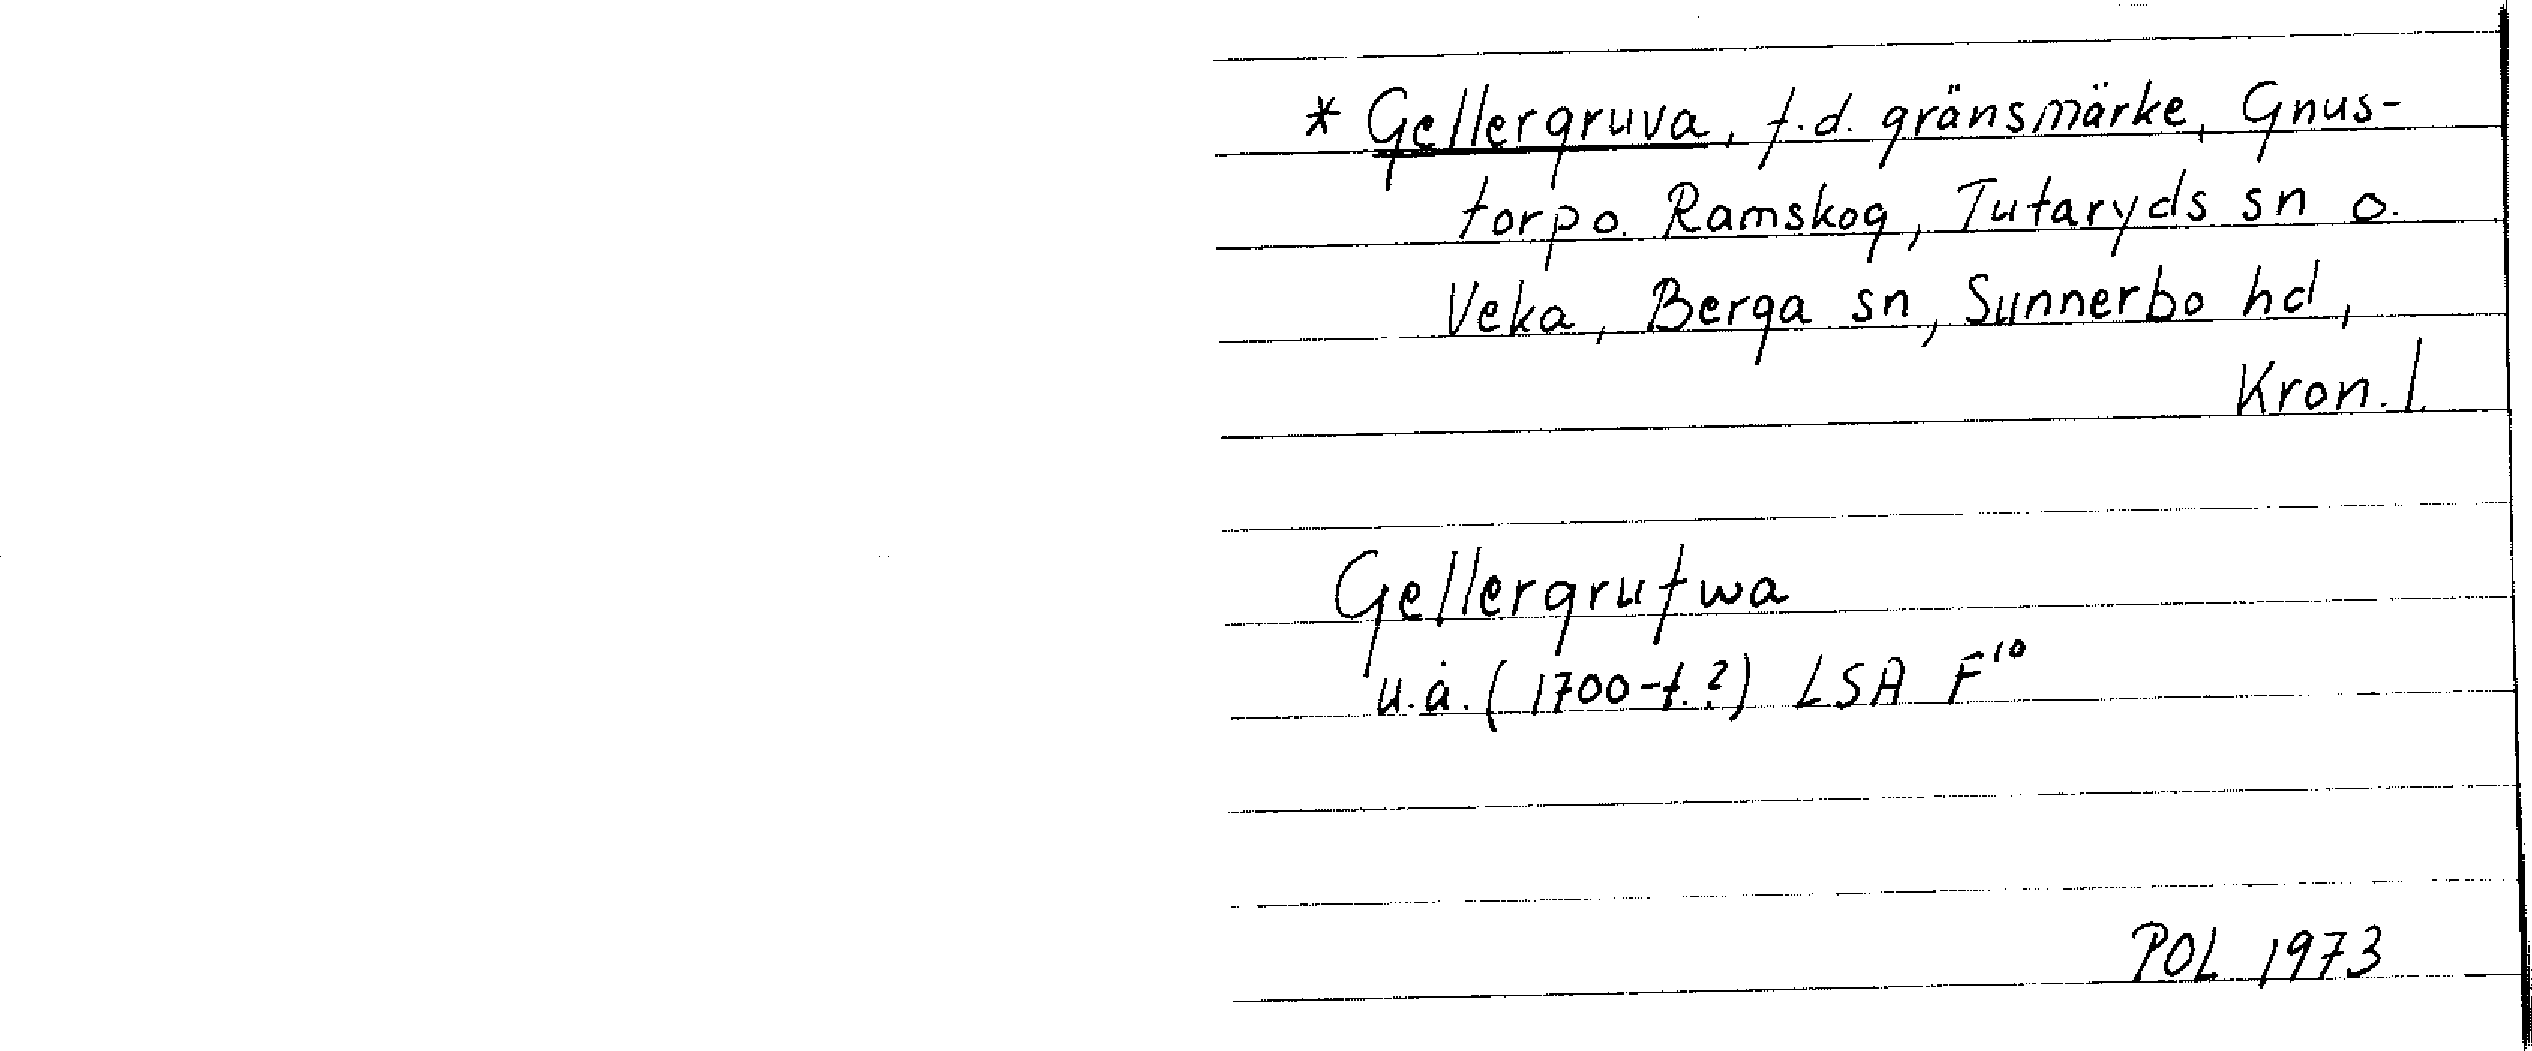 * Gellergruva, f.d. gränsmärke, Gnus-
torp o. Ramskog, Tutaryds sn o.
Veka, Berga sn, Sunnerbo hd,
Kron. l.
Gellergrufwa
u.å. (1700-t.?) LSA F10
POL 1973